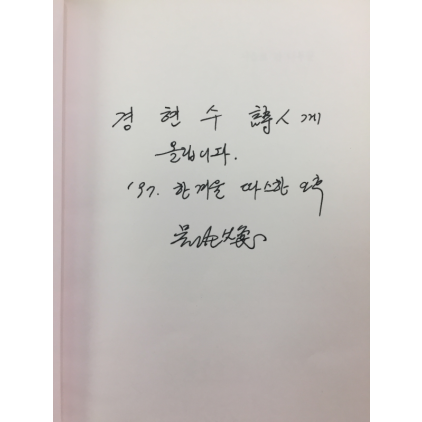 경 현 수 詩人께
올립니다.
'97. 따스한 오후